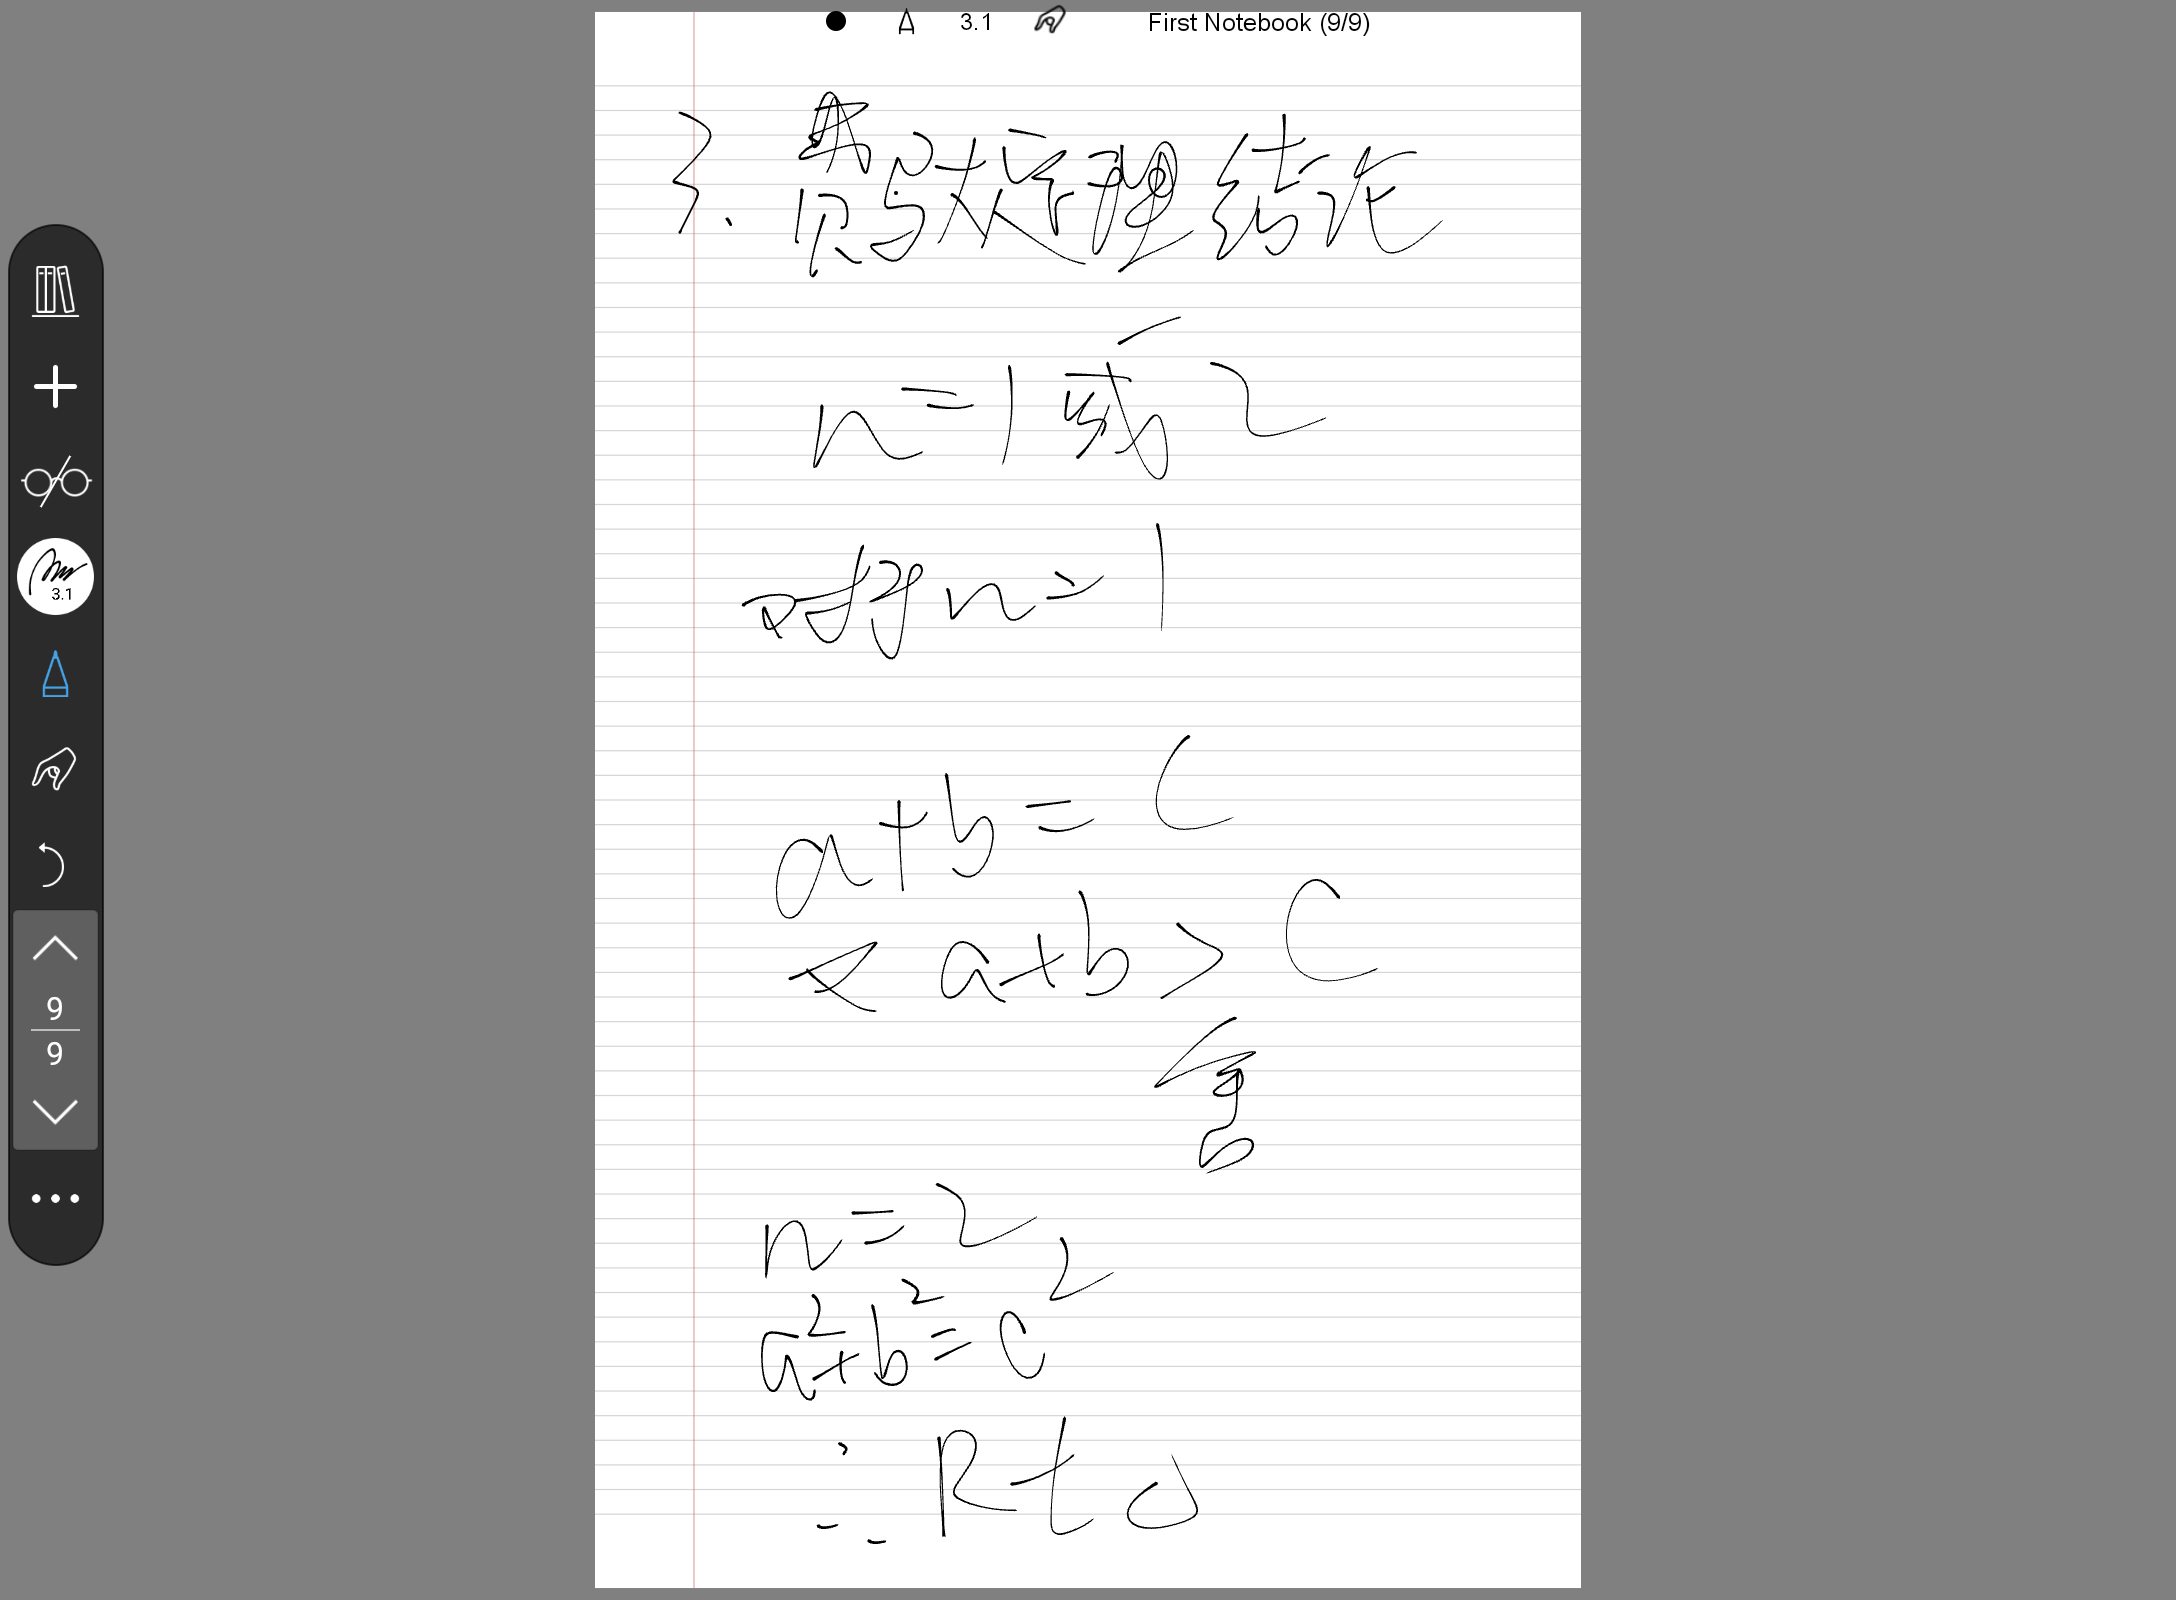 3.1 First Notebook (9/9)
3. 费马大定理结论
n=1或2
对于n=1
a+b=C
又 a+b>C
舍
n=2
a²+b²=c²
∴ Rt△
3.1
9
9